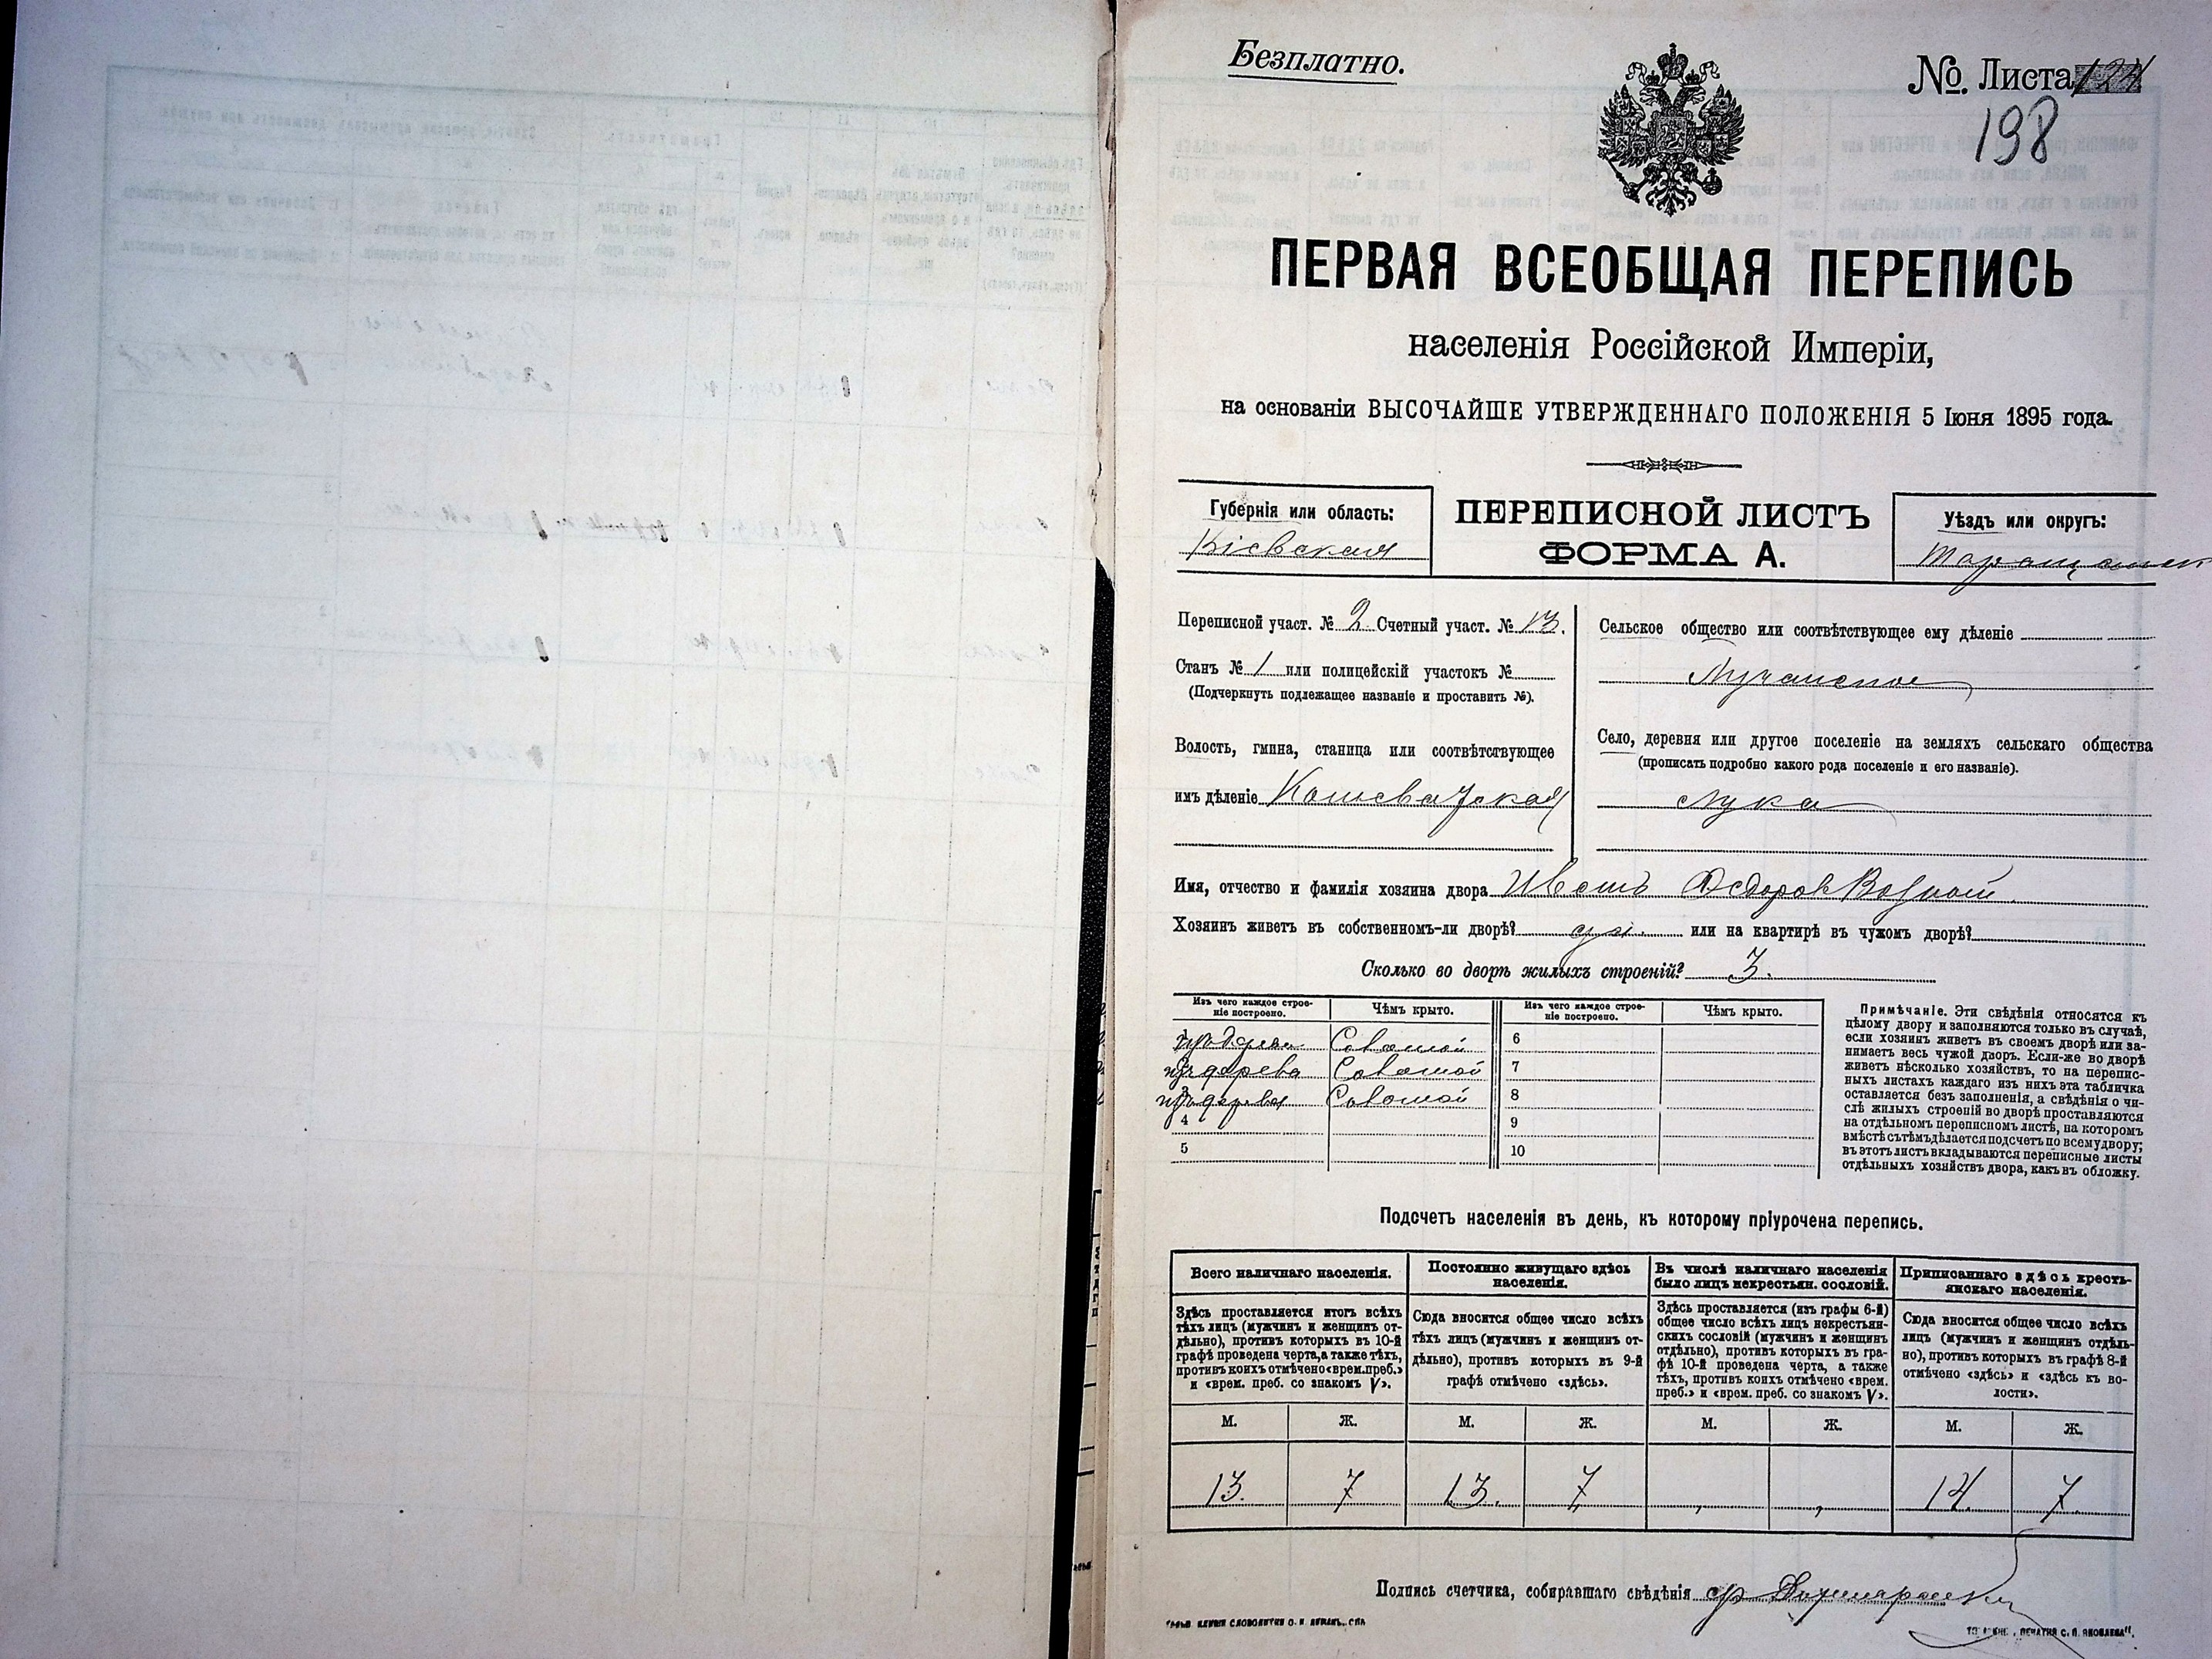 Безплатно.
№ Листа 124
198
ПЕРВАЯ ВСЕОБЩАЯ ПЕРЕПИСЬ
населенія Россійской Имперіи,
на основаніи ВЫСОЧАЙШЕ УТВЕРЖДЕННАГО ПОЛОЖЕНІЯ 5 Іюня 1895 года.
Губернія или область:
Кіевская
ПЕРЕПИСНОЙ ЛИСТЪ
ФОРМА А.
Уѣздъ или округъ:
Таращанск
Переписной участ. № 2 Счетный участ. № 13.
Станъ № 1 или полицейскій участокъ №
(Подчеркнуть подлежащее названіе и проставить №).
Волость, гмина, станица или соотвѣтствующее
имъ дѣленіе Кошеватская
Сельское общество или соотвѣтствующее ему дѣленіе
Лучанское
Село, деревня или другое поселеніе на земляхъ сельскаго общества
(прописать подробно какого рода поселеніе и его названіе).
Лука
Имя, отчество и фамилія хозяина двора Иванъ Федоров Водяной
Хозяинъ живетъ въ собственномъ-ли дворѣ? да. или на квартирѣ въ чужомъ дворѣ?
Сколько во дворѣ жилыхъ строеній? 3.
Изъ чего каждое строе-
ніе построено.
Чѣмъ крыто.
Изъ чего каждое строе-
ніе построено.
Чѣмъ крыто.
изъ дерева Соломой 6
изъ дерева Соломой 7
изъ дерева Соломой 8
4 9
5 10
Примѣчаніе. Эти свѣдѣнія относятся къ
цѣлому двору и заполняются только въ случаѣ,
если хозяинъ живетъ въ своемъ дворѣ или за-
нимаетъ весь чужой дворъ. Если-же во дворѣ
живетъ нѣсколько хозяйствъ, то на перепис-
ныхъ листахъ каждаго изъ нихъ эта табличка
оставляется безъ заполненія, а свѣдѣнія о чи-
слѣ жилыхъ строеній во дворѣ проставляются
на отдѣльномъ переписномъ листѣ, на которомъ
вмѣстѣ съ тѣмъ дѣлается подсчетъ по всему двору;
въ этотъ листъ вкладываются переписные листы
отдѣльныхъ хозяйствъ двора, какъ въ обложку.
Подсчетъ населенія въ день, къ которому пріурочена перепись.
Всего наличнаго населенія.
Здѣсь проставляется итогъ всѣхъ
тѣхъ лицъ (мужчинъ и женщинъ от-
дѣльно), противъ которыхъ въ 10-й
графѣ проведена черта, а также тѣхъ,
противъ коихъ отмѣчено «врем. преб.»
и «врем. преб. со знакомъ V».
Постоянно живущаго здѣсь
населенія.
Сюда вносится общее число всѣхъ
тѣхъ лицъ (мужчинъ и женщинъ от-
дѣльно), противъ которыхъ въ 9-й
графѣ отмѣчено «здѣсь».
Въ числѣ наличнаго населенія
было лицъ некрестьян. сословій.
Здѣсь проставляется (изъ графы 6-й)
общее число всѣхъ лицъ некрестьян-
скихъ сословій (мужчинъ и женщинъ
отдѣльно), противъ которыхъ въ гра-
фѣ 10-й проведена черта, а также
тѣхъ, противъ коихъ отмѣчено «врем.
преб.» и «врем. преб. со знакомъ V».
Приписаннаго здѣсь кресть-
янскаго населенія.
Сюда вносится общее число всѣхъ
лицъ (мужчинъ и женщинъ отдѣль-
но), противъ которыхъ въ графѣ 8-й
отмѣчено «здѣсь» и «здѣсь къ во-
лости».
М. Ж. М. Ж. М. Ж. М. Ж.
13. 7 13. 7 14. 7.
Подпись счетчика, собиравшаго свѣдѣнія